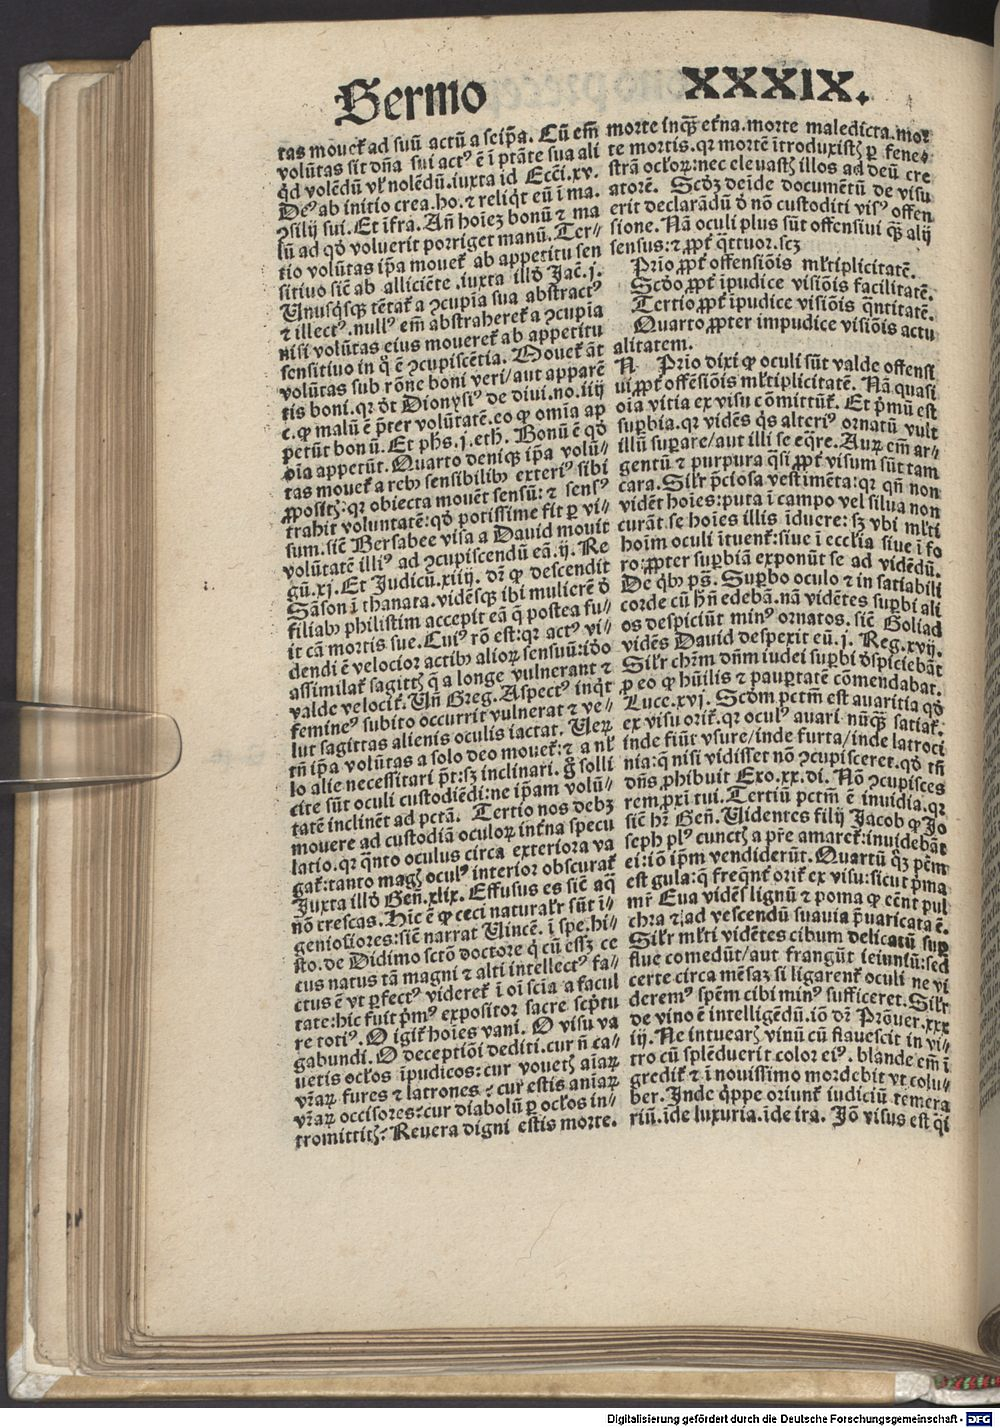 Sermo XXXIX.
tas mouet᷑ ad suū actū a seip̄a. Cū em̄
volūtas sit dn̄a sui actꝰ ē ī ptāte sua ali
qd volēdū vl̓ nolēdū. iuxta id Ecc̄i. xv.
Deꝰ ab initio crea. ho. ⁊ reliq̇t eū ī ma.
ꝯsilij sui. Et īfra. An̄ hoiēꝫ bonū ⁊ ma
lū ad qḋ voluerit porriget manū. Ter⸗
tio volūtas ip̄a mouet᷑ ab appetitu sen
sitiuo siē ab alliciēte. iuxta illḋ Jac̄. j.
Unusq̇sqꝫ tētat᷑ a ꝯcupīa sua abstractꝰ
⁊ illectꝰ. nullꝰ em̄ abstraheret᷑ a ꝯcupīa
nisi volūtas eius moueret᷑ ab appetitu
sensitiuo in q̇ ē ꝯcupiscētia. Mouet᷑ āt
volūtas sub rōne boni veri/aut apparē
tis boni. qr ḋt Dionysiꝰ de diui. no. iiij
c. ꝙ malū ē p̄ter volūtatē. eo ꝙ omīa ap
petūt bonū. Et phs. j. eth. Bonū ē qḋ
oīa appetūt. Quarto deniqꝫ ip̄a volū⸗
tas mouet᷑ a rebꝰ sensibilibꝰ exteriꝰ sibi
ꝓpositꝭ: qr obiecta mouēt sensū: ⁊ sensꝰ
trahit voluntatē: qḋ potissime fit ꝑ vi⸗
sum. siē Bersabee visa a Dauid mouit
volūtatē illiꝰ ad ꝯcupiscendū eā. ij. Re
gū. xj. Et Judicū. xiiij. dr̄ ꝙ descendit
Sāson ī thanata. vidēsqꝫ ibi mulierē ḋ
filiabꝰ philistim accepit eā q̄ postea fu⸗
it cā mortis sue. Cuiꝰ rō est: qr actꝰ vi⸗
dendi ē velocior actibꝰ alioꝝ sensuū: iḋo
assimilat᷑ sagittꝭ q̄ a longe vulnerant ⁊
valde velocit᷑. Un̄ Greg. Aspectꝰ inq̇t
femineꝰ subito occurrit vulnerat ⁊ ve⸗
lut sagittas alienis oculis iactat. Ueꝝ
tn̄ ip̄a volūtas a solo deo mouet᷑: ⁊ a nl̓
lo alio necessitari pt̄: sꝫ inclinari. ḡ solli
cite sūt oculi custodiēdi: ne ip̄am volū⸗
tatē inclinēt ad pctā. Tertio nos debꝫ
mouere ad custodiā oculoꝝ int̓na specu
latio. qr q̄nto oculus circa exteriora va
gat᷑: tanto magꝭ oculꝰ interior obscurat᷑
Juxta illḋ Gen̄. xlix. Effusus es siē aq̄
nō crescas. Hic ē ꝙ ceci naturalr̓ sūt ī⸗
geniosiores: siē narrat Uincē. ī spe. hi⸗
sto. de Didimo sctō doctore q̇ cū essꝫ ce
cus natus tā magni ⁊ alti intellectꝰ fa⸗
ctus ē vt ꝑfectꝰ videret᷑ ī oī scīa a facul
tate: hic fuit pm̄ꝰ expositor sacre scp̄tu
re totiꝰ. O igit᷑ hoīes vani. O visu va
gabundi. O deceptiōi dediti. cur n̄ ca⸗
uetis oclos īpudicos: cur vouetꝭ aīaꝝ
vr̄aꝝ fures ⁊ latrones: cur estis aniaꝝ
vr̄aꝝ occisores: cur diabolū ꝑ oclos in⸗
tromittitꝭ: Reuera digni estis morte.
morte inqꝫ̄ et̓na. morte maledicta. mor
te mortis. qr mortē ītroduxistꝭ ꝑ fene⸗
strā ocloꝝ: nec eleuastꝭ illos ad deū cre
atorē. Scḋꝫ deīde documētū de visu
erit declarādū ḋ nō custoditi visꝰ offen
sione. Nā oculi plus sūt offensiui qꝫ̄ alij
sensus: ⁊ ꝓpt᷑ q̄ttuor. scꝫ
Prīo ꝓpt᷑ offensiōis ml̓tiplicitatē.
Scḋo ꝓpt᷑ īpudice visiōis facilitatē.
Tertio ꝓpt᷑ īpudice visiōis q̄ntitatē.
Quarto ꝓpter impudice visiōis actu
alitatem.
N Prīo dixi ꝙ oculi sūt valde offensi
ui ꝓpt᷑ offēsiōis ml̓tiplicitatē. Nā quasi
oīa vitia ex visu cōmittūt᷑. Et pm̄ū est
suꝑbia. qr vidēs q̇s alteriꝰ ornatū vult
illū suꝑare/aut illi se eq̄re. Auꝝ em̄ ar⸗
gentū ⁊ purpura q̄si ꝓpt᷑ visum sūt tam
cara. Silr̓ p̄ciosa vestimēta: qr qn̄ non
vidēt hoīes: puta ī campo vel silua non
curāt se hoīes illis īduere: sꝫ vbi ml̓ti
hoīm oculi ītuent᷑: siue ī ecclīa siue ī fo
ro: ꝓpter suꝑbiā exponūt se ad vidēdū.
De q̇bꝰ ps̄. Suꝑbo oculo ⁊ in satiabili
corde cū hn̄ edebā. nā vidētes suꝑbi ali
os despiciūt minꝰ ornatos. siē Goliad
vidēs Dauid despexit eū. j. Reg. xvij.
Silr̓ chr̄m dn̄m iudei suꝑbi ḋspiciebāt
ꝑ eo ꝙ hūilis ⁊ pauꝑtatē cōmendabat.
Luce. xvj. Scḋm pctm̄ est auaritia qḋ
ex visu orit᷑. qr oculꝰ auari nūqꝫ̄ satiat᷑.
inde fiūt vsure/inde furta/inde latroci
nia: q̄ nisi vidisset nō ꝯcupisceret. qḋ tn̄
dn̄s ꝓhibuit Exo. xx. di. Nō ꝯcupisces
rem ꝓxī tui. Tertiū pctm̄ ē inuidia. qr
siē hr̄ Gen̄. Uidentes filij Jacob ꝙ Jo
seph plꝰ cunctꝭ a pr̄e amaret᷑: inuidebāt
ei: iō ip̄m vendiderūt. Quartū q̇ꝫ pc̄m
est gula: q̄ freqn̄t᷑ orit᷑ ex visu: sicut pm̄a
mr̄ Eua vidēs lignū ⁊ poma ꝙ eēnt pul
chra ⁊ ad vescendū suauia p̄uaricata ē.
Silr̓ ml̓ti vidētes cibum delicatū suꝑ
flue comedūt/aut frangūt ieiuniū: sed
certe circa mēsaꝫ si ligarent᷑ oculi ne vi
deremꝰ spēm cibi minꝰ sufficeret. Silr̓
de vino ē intelligēdū. iō dr̄ Prōuer. xxx
iij. Ne intuearꝭ vinū cū flauescit in vi⸗
tro cū splēduerit color eiꝰ. blande em̄ ī
gredit᷑ ⁊ ī nouissimo mordebit vt colu⸗
ber. Inde q̇ppe oriunt᷑ iudiciū temera
riū. īde luxuria. īde ira. Iō visus est q̇
Digitalisierung gefördert durch die Deutsche Forschungsgemeinschaft - DFG